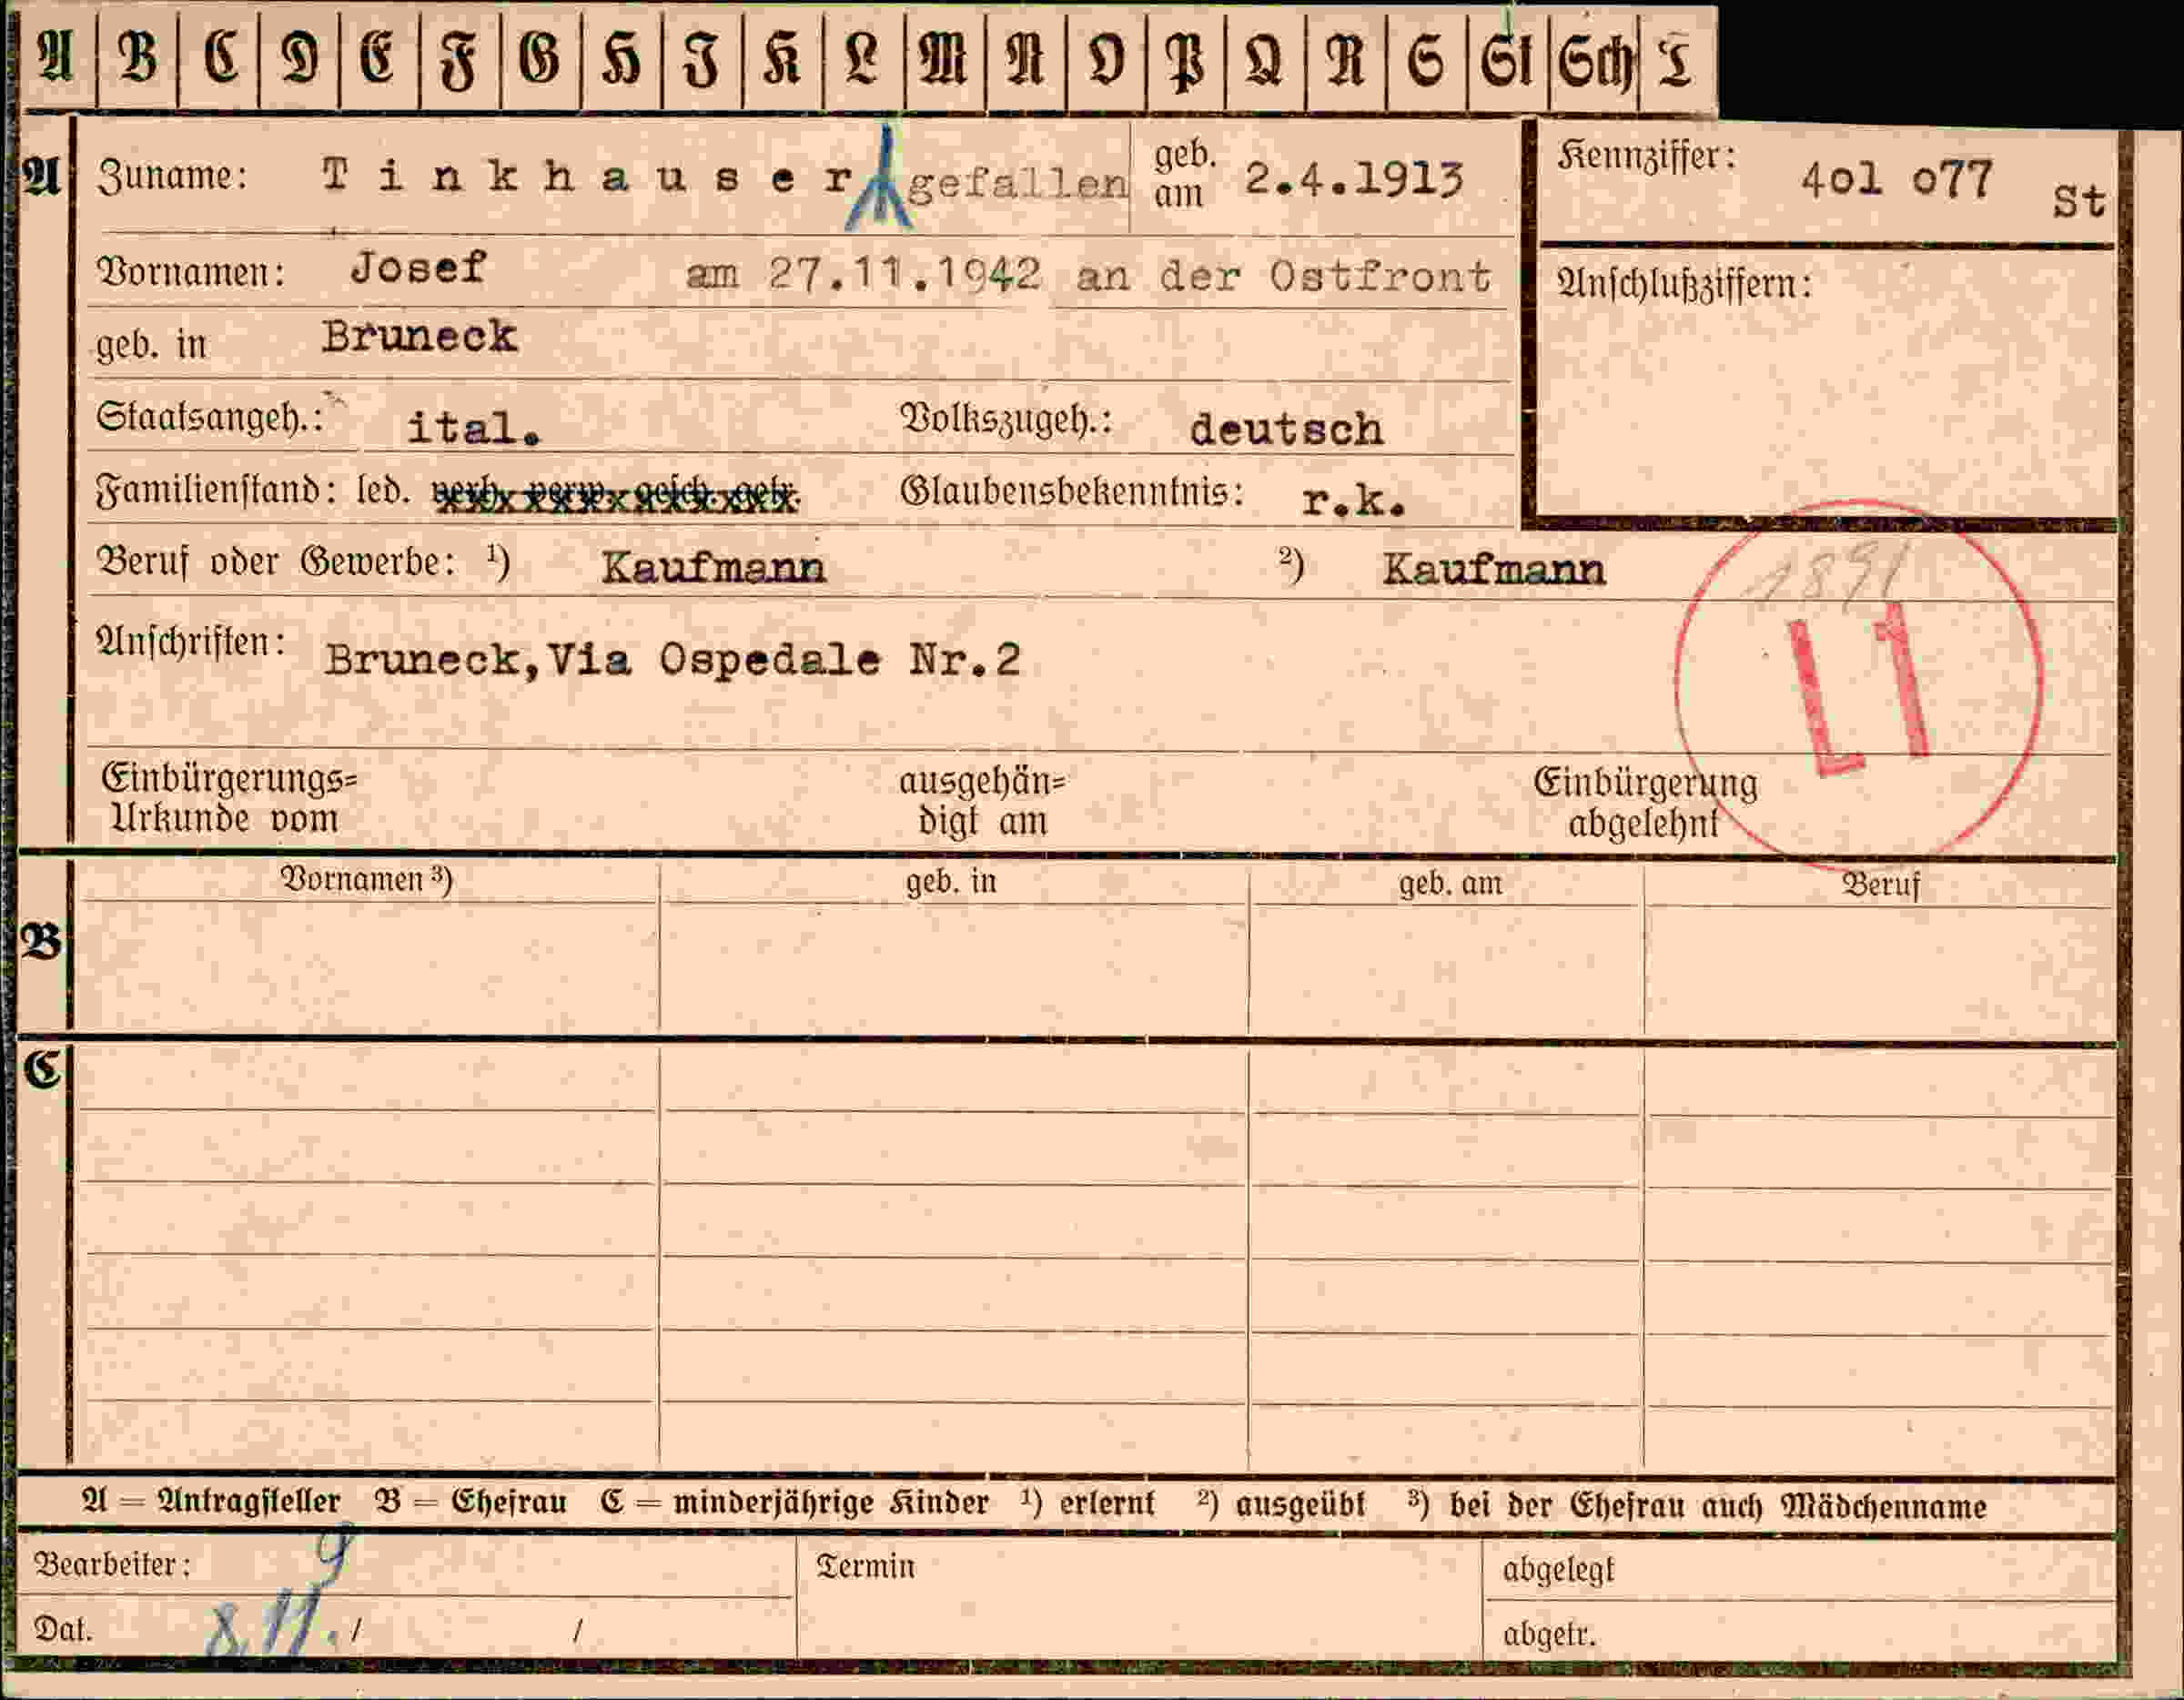 A B C D E F G H I K L M N O P Q R S St Sch T
A Zuname: Tinkhauser gefallen geb. am 2.4.1913 Kennziffer: 4o1 o77 St
Vornamen: Josef am 27.11.1942 an der Ostfront Anschlußziffern:
geb. in Bruneck
Staatsangeh.: ital. Volkszugeh.: deutsch
Familienstand: led. verh. verw. gesch. getr. Glaubensbekenntnis: r.k.
Beruf oder Gewerbe: ¹) Kaufmann ²) Kaufmann
1891
L1
Anschriften: Bruneck,Via Ospedale Nr.2
Einbürgerungs= ausgehän= Einbürgerung
Urkunde vom digt am abgelehnt
Vornamen ³) geb. in geb. am Beruf
B
C
A = Antragsteller B = Ehefrau C = minderjährige Kinder ¹) erlernt ²) ausgeübt ³) bei der Ehefrau auch Mädchenname
Bearbeiter: Termin abgelegt
Dat. 8.11. / / abgetr.